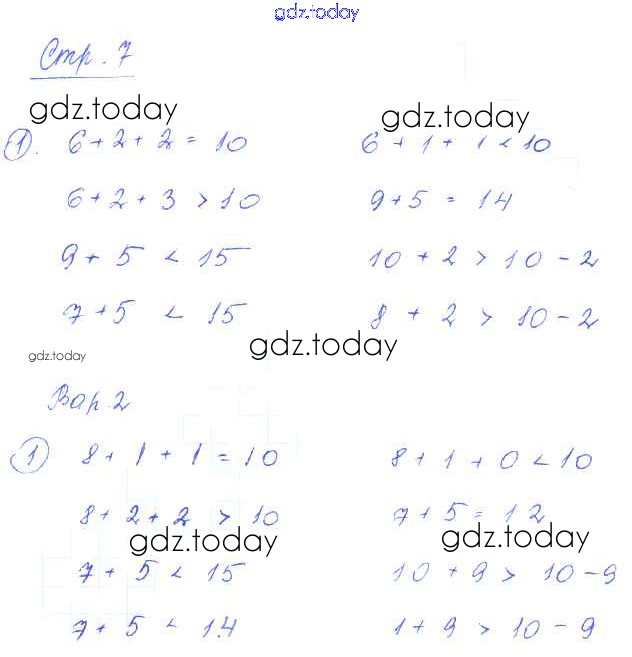 gdz.today
Стр. 7
gdz.today
gdz.today
1. 6+2+2=10
6+1+1<10
6+2+3>10
9+5=14
9+5<15
10+2>10-2
7+5<15
8+2>10-2
gdz.today
gdz.today
Вар. 2
1 8+1+1=10
8+1+0<10
8+2+2>10
7+5=12
gdz.today
gdz.today
7+5<15
10+9>10-9
7+5<14
1+9>10-9